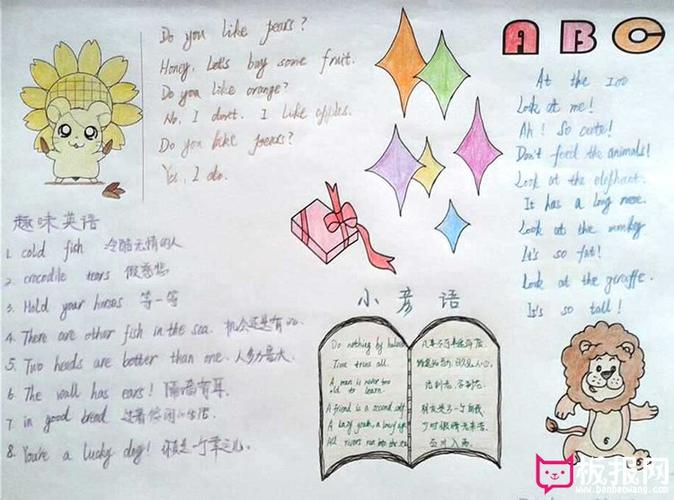 Do you like pears?
Honey, Let's buy some fruit.
Do you like orange?
No, I don't. I like apples.
Do you like pears?
Yes, I do.
ABC
At the zoo
Look at me!
Ah! So cute!
Don't feed the animals!
Look at the elephant.
It has a long nose.
Look at the monkey
It's so fat!
Look at the giraffe.
It's so tall!
趣味英语
1. cold fish 冷酷无情的人
2. crocodile tears 假慈悲
3. Hold your horses 等一等
4. There are other fish in the sea. 机会还是有的.
5. Two heads are better than one. 人多力量大.
6. The wall has ears! 隔墙有耳.
7. in good bread 过着悠闲的生活
8. You're a lucky dog! 你真是一个幸运儿!
小彦语
Do nothing by halves
Time tries all.
A man is never too
old to learn.
A friend is a second self
A lazy youth, a lousy age
All rivers run into the sea
活到老,学到老.
板报网
www.banbaowang.com